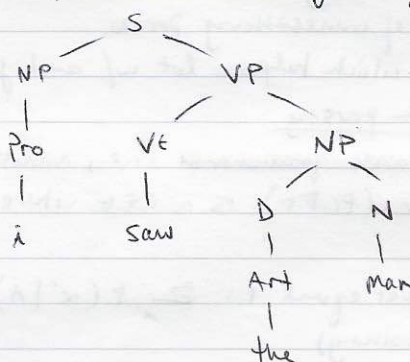 S
NP VP
Pro Vt NP
i saw D N
Art man
the